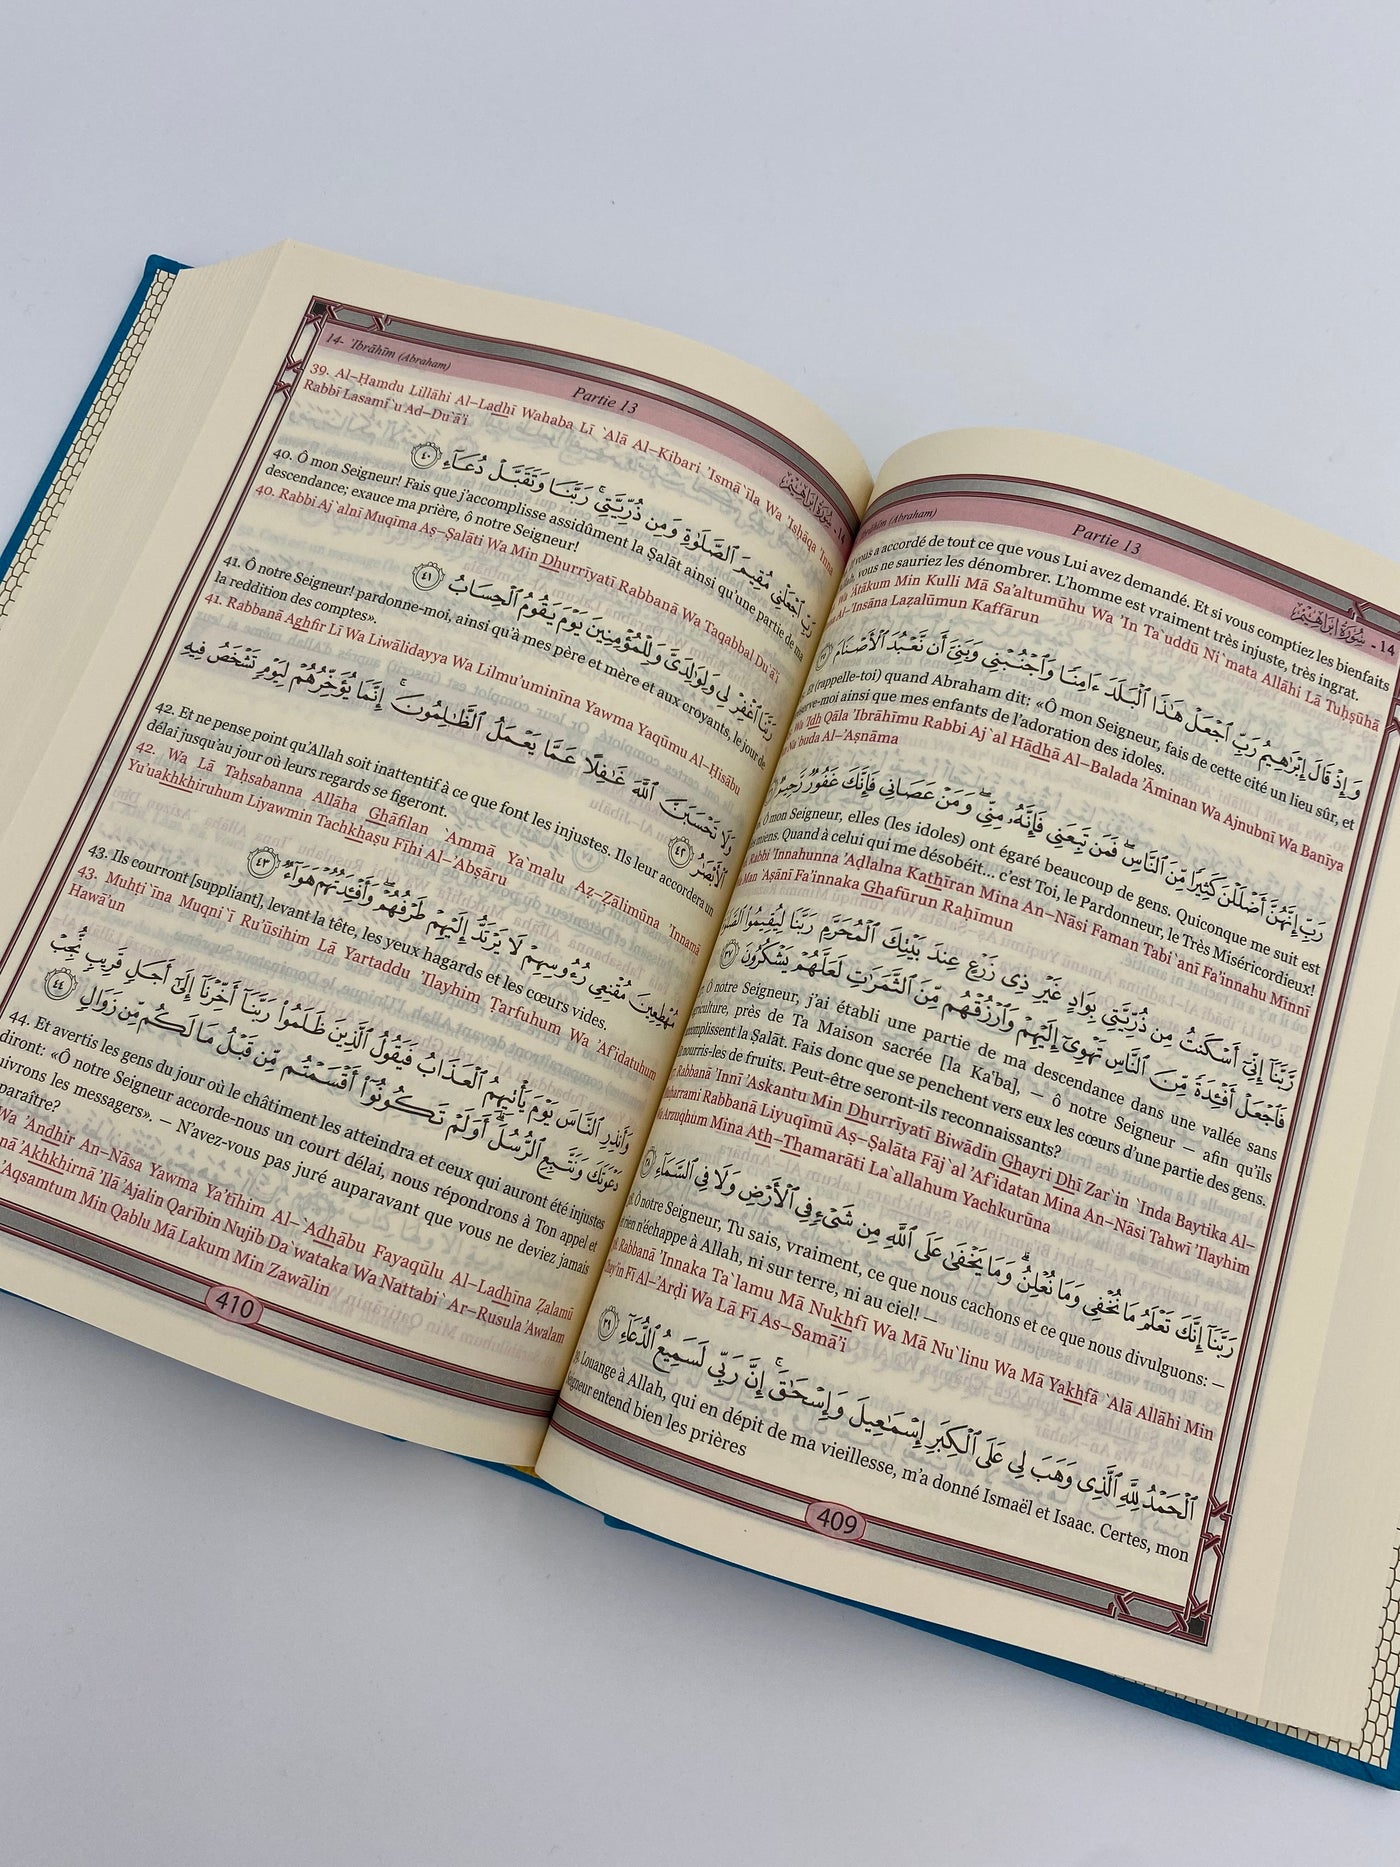 14- 'Ibrāhīm (Abraham)
Partie 13
سُورَةُ إِبْرَاهِيمَ - ١٤
vous a accordé de tout ce que vous Lui avez demandé. Et si vous comptiez les bienfaits
vous ne sauriez les dénombrer. L'homme est vraiment très injuste, très ingrat.
Wa 'Ātākum Min Kulli Mā Sa'altumūhu Wa 'In Ta`uddū Ni`mata Allāhi Lā Tuḥṣūhā
Al-'Insāna Laẓalūmun Kaffārun
وَإِذْ قَالَ إِبْرَٰهِيمُ رَبِّ ٱجْعَلْ هَـٰذَا ٱلْبَلَدَ ءَامِنًا وَٱجْنُبْنِى وَبَنِىَّ أَن نَّعْبُدَ ٱلْأَصْنَامَ
Et (rappelle-toi) quand Abraham dit: «Ô mon Seigneur, fais de cette cité un lieu sûr, et
ainsi que mes enfants de l'adoration des idoles.
Wa 'Idh Qāla 'Ibrāhīmu Rabbi Aj`al Hādhā Al-Balada 'Āminan Wa Ajnubnī Wa Banīya
Na`buda Al-'Aşnāma
رَبِّ إِنَّهُنَّ أَضْلَلْنَ كَثِيرًا مِّنَ ٱلنَّاسِ ۖ فَمَن تَبِعَنِى فَإِنَّهُۥ مِنِّى ۖ وَمَنْ عَصَانِى فَإِنَّكَ غَفُورٌ رَّحِيمٌ
Ô mon Seigneur, elles (les idoles) ont égaré beaucoup de gens. Quiconque me suit est
miens. Quand à celui qui me désobéit... c'est Toi, le Pardonneur, le Très Miséricordieux!
Rabbi 'Innahunna 'Aḍlalna Kathīran Mina An-Nāsi Faman Tabi`anī Fa'innahu Minnī
Man `Aşānī Fa'innaka Ghafūrun Raḥīmun
رَّبَّنَآ إِنِّىٓ أَسْكَنتُ مِن ذُرِّيَّتِى بِوَادٍ غَيْرِ ذِى زَرْعٍ عِندَ بَيْتِكَ ٱلْمُحَرَّمِ رَبَّنَا لِيُقِيمُوا۟ ٱلصَّلَوٰةَ
فَٱجْعَلْ أَفْـِٔدَةً مِّنَ ٱلنَّاسِ تَهْوِىٓ إِلَيْهِمْ وَٱرْزُقْهُم مِّنَ ٱلثَّمَرَٰتِ لَعَلَّهُمْ يَشْكُرُونَ ٣٧
Ô notre Seigneur, j'ai établi une partie de ma descendance dans une vallée sans
agriculture, près de Ta Maison sacrée [la Ka'ba], — ô notre Seigneur — afin qu'ils
accomplissent la Ṣalāt. Fais donc que se penchent vers eux les cœurs d'une partie des gens.
Et nourris-les de fruits. Peut-être seront-ils reconnaissants?
Rabbanā 'Innī 'Askantu Min Dhurrīyatī Biwādin Ghayri Dhī Zar`in `Inda Baytika Al-
Muḥarrami Rabbanā Liyuqīmū Aş-Şalāta Fāj`al 'Af'idatan Mina An-Nāsi Tahwī 'Ilayhim
Wa Arzuqhum Mina Ath-Thamarāti La`allahum Yachkurūna
رَبَّنَآ إِنَّكَ تَعْلَمُ مَا نُخْفِى وَمَا نُعْلِنُ ۗ وَمَا يَخْفَىٰ عَلَى ٱللَّهِ مِن شَىْءٍ فِى ٱلْأَرْضِ وَلَا فِى ٱلسَّمَآءِ ٣٨
Ô notre Seigneur, Tu sais, vraiment, ce que nous cachons et ce que nous divulguons: —
et rien n'échappe à Allah, ni sur terre, ni au ciel! —
Rabbanā 'Innaka Ta`lamu Mā Nukhfī Wa Mā Nu`linu Wa Mā Yakhfá `Alá Allāhi Min
Chay'in Fī Al-'Arḍi Wa Lā Fī As-Samā'i
ٱلْحَمْدُ لِلَّهِ ٱلَّذِى وَهَبَ لِى عَلَى ٱلْكِبَرِ إِسْمَـٰعِيلَ وَإِسْحَـٰقَ ۚ إِنَّ رَبِّى لَسَمِيعُ ٱلدُّعَآءِ ٣٩
Louange à Allah, qui en dépit de ma vieillesse, m'a donné Ismaël et Isaac. Certes, mon
Seigneur entend bien les prières
409
14- 'Ibrāhīm (Abraham)
Partie 13
سُورَةُ إِبْرَاهِيمَ - ١٤
39. Al-Ḥamdu Lillāhi Al-Ladhī Wahaba Lī `Alá Al-Kibari 'Ismā`īla Wa 'Isḥāqa 'Inna
Rabbī Lasamī`u Ad-Du`ā'i
رَبِّ ٱجْعَلْنِى مُقِيمَ ٱلصَّلَوٰةِ وَمِن ذُرِّيَّتِى ۚ رَبَّنَا وَتَقَبَّلْ دُعَآءِ ٤٠
40. Ô mon Seigneur! Fais que j'accomplisse assidûment la Ṣalāt ainsi qu'une partie de ma
descendance; exauce ma prière, ô notre Seigneur!
40. Rabbi Aj`alnī Muqīma Aş-Şalāti Wa Min Dhurrīyatī Rabbanā Wa Taqabbal Du`ā'i
رَبَّنَا ٱغْفِرْ لِى وَلِوَٰلِدَىَّ وَلِلْمُؤْمِنِينَ يَوْمَ يَقُومُ ٱلْحِسَابُ ٤١
41. Ô notre Seigneur! pardonne-moi, ainsi qu'à mes père et mère et aux croyants, le jour de
la reddition des comptes».
41. Rabbanā Aghfir Lī Wa Liwālidayya Wa Lilmu'uminīna Yawma Yaqūmu Al-Ḥisābu
وَلَا تَحْسَبَنَّ ٱللَّهَ غَـٰفِلًا عَمَّا يَعْمَلُ ٱلظَّـٰلِمُونَ ۚ إِنَّمَا يُؤَخِّرُهُمْ لِيَوْمٍ تَشْخَصُ فِيهِ
ٱلْأَبْصَـٰرُ ٤٢
42. Et ne pense point qu'Allah soit inattentif à ce que font les injustes. Ils leur accordera un
délai jusqu'au jour où leurs regards se figeront.
42. Wa Lā Taḥsabanna Allāha Ghāfilan `Ammā Ya`malu Aẓ-Ẓālimūna 'Innamā
Yu'uakhkhiruhum Liyawmin Tachkhaşu Fīhi Al-'Abşāru
مُهْطِعِينَ مُقْنِعِى رُءُوسِهِمْ لَا يَرْتَدُّ إِلَيْهِمْ طَرْفُهُمْ ۖ وَأَفْـِٔدَتُهُمْ هَوَآءٌ ٤٣
43. Ils courront [suppliant], levant la tête, les yeux hagards et les cœurs vides.
43. Muhṭi`īna Muqni`ī Ru'ūsihim Lā Yartaddu 'Ilayhim Ṭarfuhum Wa 'Af'idatuhum
Hawā'un
وَأَنذِرِ ٱلنَّاسَ يَوْمَ يَأْتِيهِمُ ٱلْعَذَابُ فَيَقُولُ ٱلَّذِينَ ظَلَمُوا۟ رَبَّنَآ أَخِّرْنَآ إِلَىٰٓ أَجَلٍ قَرِيبٍ نُّجِبْ
دَعْوَتَكَ وَنَتَّبِعِ ٱلرُّسُلَ ۗ أَوَلَمْ تَكُونُوٓا۟ أَقْسَمْتُم مِّن قَبْلُ مَا لَكُم مِّن زَوَالٍ ٤٤
44. Et avertis les gens du jour où le châtiment les atteindra et ceux qui auront été injustes
diront: «Ô notre Seigneur accorde-nous un court délai, nous répondrons à Ton appel et
suivrons les messagers». — N'avez-vous pas juré auparavant que vous ne deviez jamais
disparaître?
Wa 'Andhir An-Nāsa Yawma Ya'tīhim Al-`Adhābu Fayaqūlu Al-Ladhīna Ẓalamū
'Akhkhirnā 'Ilá 'Ajalin Qarībin Nujib Da`wataka Wa Nattabi` Ar-Rusula 'Awalam
'Aqsamtum Min Qablu Mā Lakum Min Zawālin
410